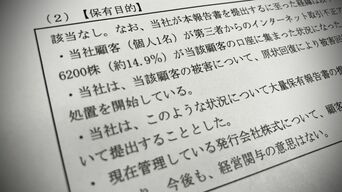 (2)【保有目的】
該当なし。なお、当社が本報告書を提出するに至った経緯は
・当社顧客(個人1名)が第三者からのインターネット取引(不正ア
6200株(約14.9%)が当該顧客の口座に集まった状況になった
・当社は、当該顧客の被害について、原状回復により被害回
処置を開始している。
・当社は、このような状況について大量保有報告書の
いて提出することとした。
・現在管理している発行会社株式について、顧客
今後も、経営関与の意思はない。